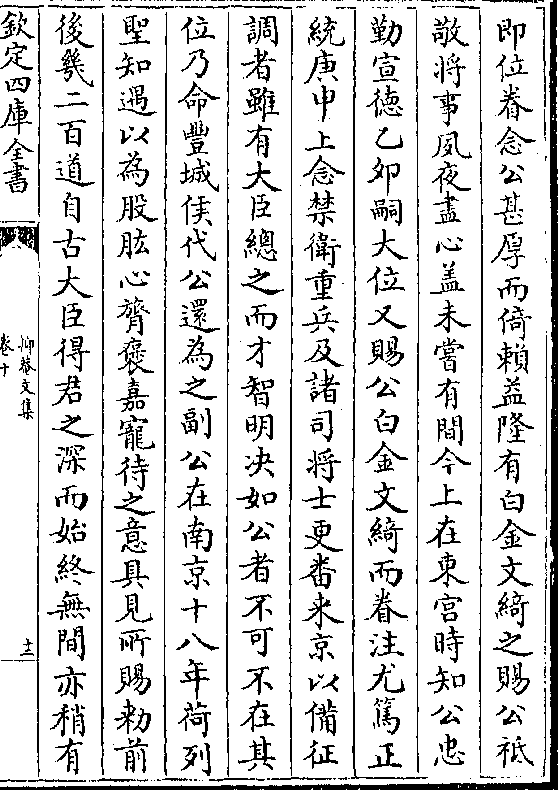 即位眷念公甚厚而倚賴益隆有白金文綺之賜公祗
敬将事夙夜盡心盖未嘗有間今上在東宮時知公忠
勤宣徳乙夘嗣大位又賜公白金文綺而眷注尤篤正
統庚申上念禁衛重兵及諸司将士更畨来京以備征
調者雖有大臣總之而才智明决如公者不可不在其
位乃命豐城侯代公還為之副公在南京十八年荷列
聖知遇以為股肱心膂褒嘉寵待之意具見所賜勑前
後幾二百道自古大臣得君之深而始終無間亦稍有
欽定四庫全書
抑菴文集
卷十
十三